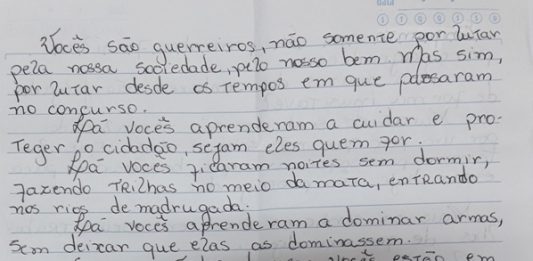 Vocês são guerreiros, não somente por lutar
pela nossa sociedade, pelo nosso bem. Mas sim,
por lutar desde os tempos em que passaram
no concurso.
Lá vocês aprenderam a cuidar e pro-
teger o cidadão, sejam eles quem for.
Lá vocês ficaram noites sem dormir,
fazendo trilhas no meio da mata, entrando
nos rios de madrugada.
Lá vocês aprenderam a dominar armas,
sem deixar que elas as dominassem.
vocês estão em